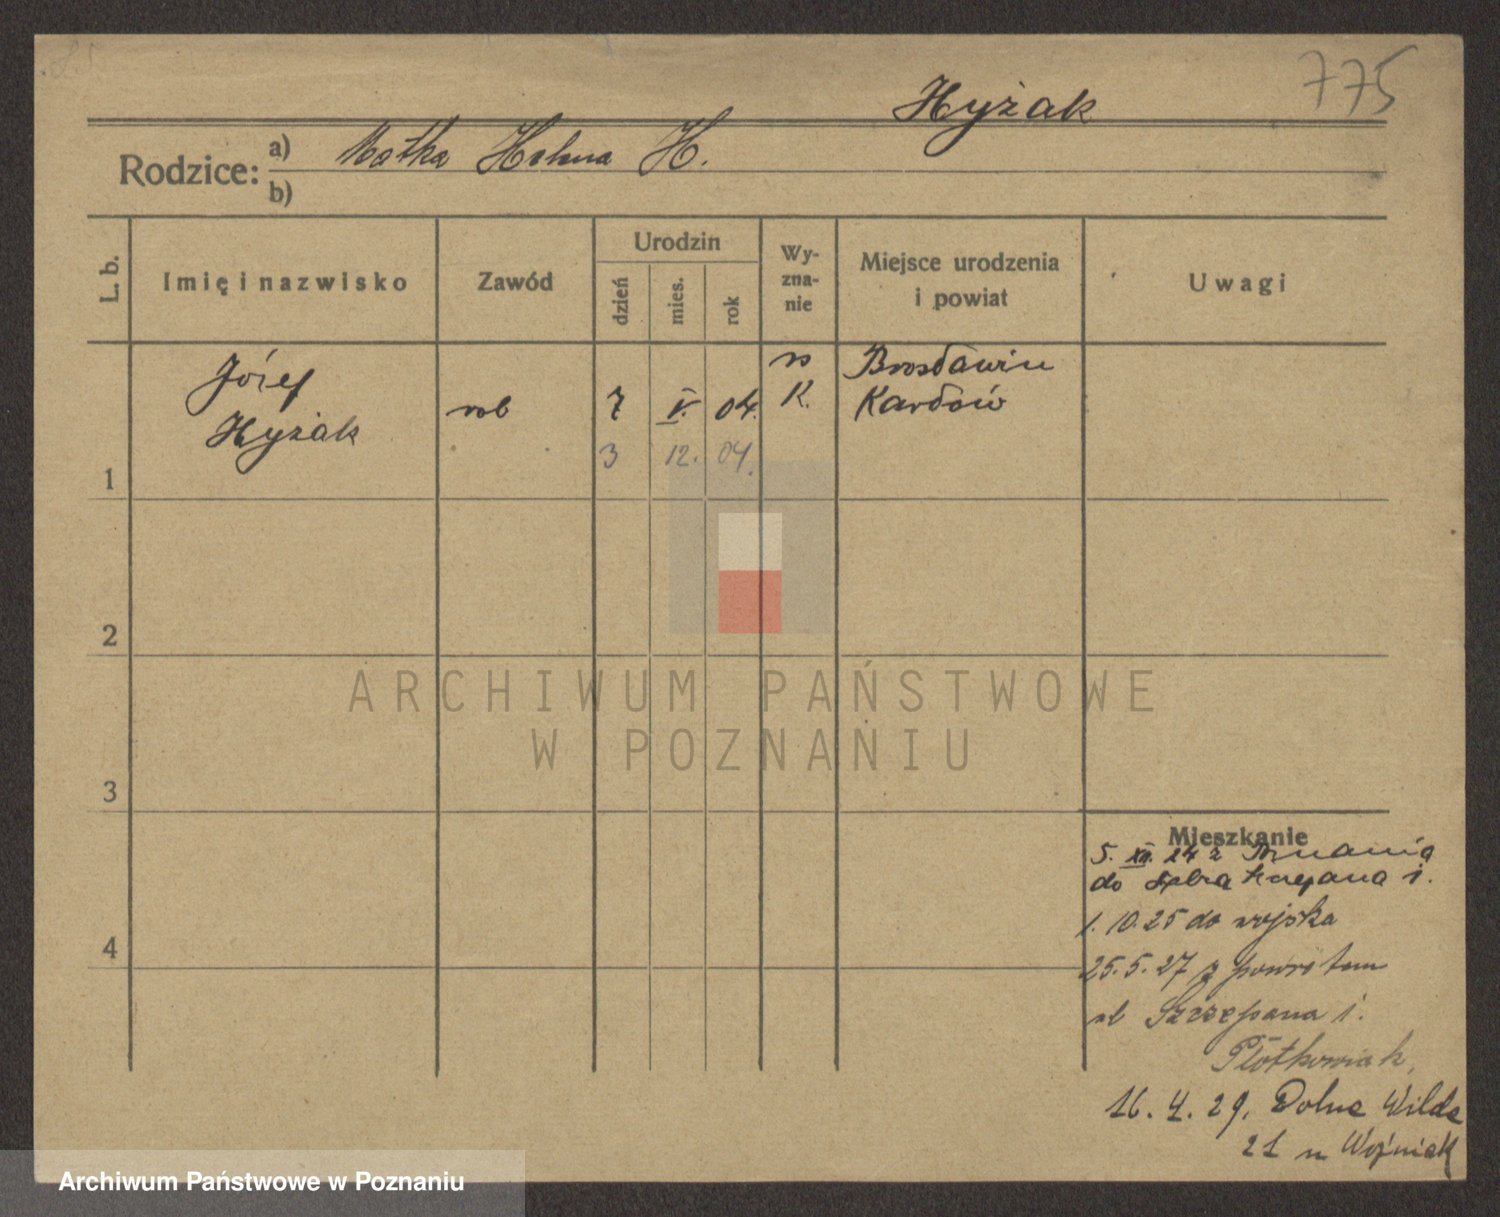 775
Hyżak
Rodzice: a) Matka Helena H.
b)
L. b.
Imię i nazwisko
Zawód
Urodzin
dzień
mies.
rok
Wy-
zna-
nie
Miejsce urodzenia
i powiat
Uwagi
1
Józef
Hyżak
rob
7
V.
04.
3
12.
04.
K.
2
ARCHIWUM PAŃSTWOWE
W POZNANIU
3
Mieszkanie
5. XII. 24 z
do
1. 10. 25 do wojska
4
25. 5. 27 z powrotem
ul Szczepana 1.
Płotkowiak,
16. 4. 29. Dolna Wilda
21 u Woźniak
Archiwum Państwowe w Poznaniu